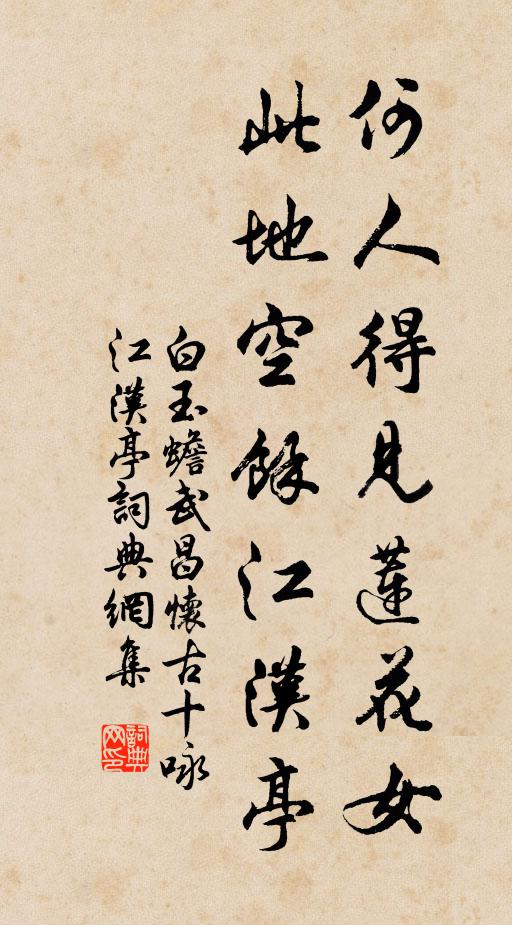 何人得見蓮花女
此地空餘江漢亭
白玉蟾武昌懷古十咏
江漢亭詞典網集
詞典
网印